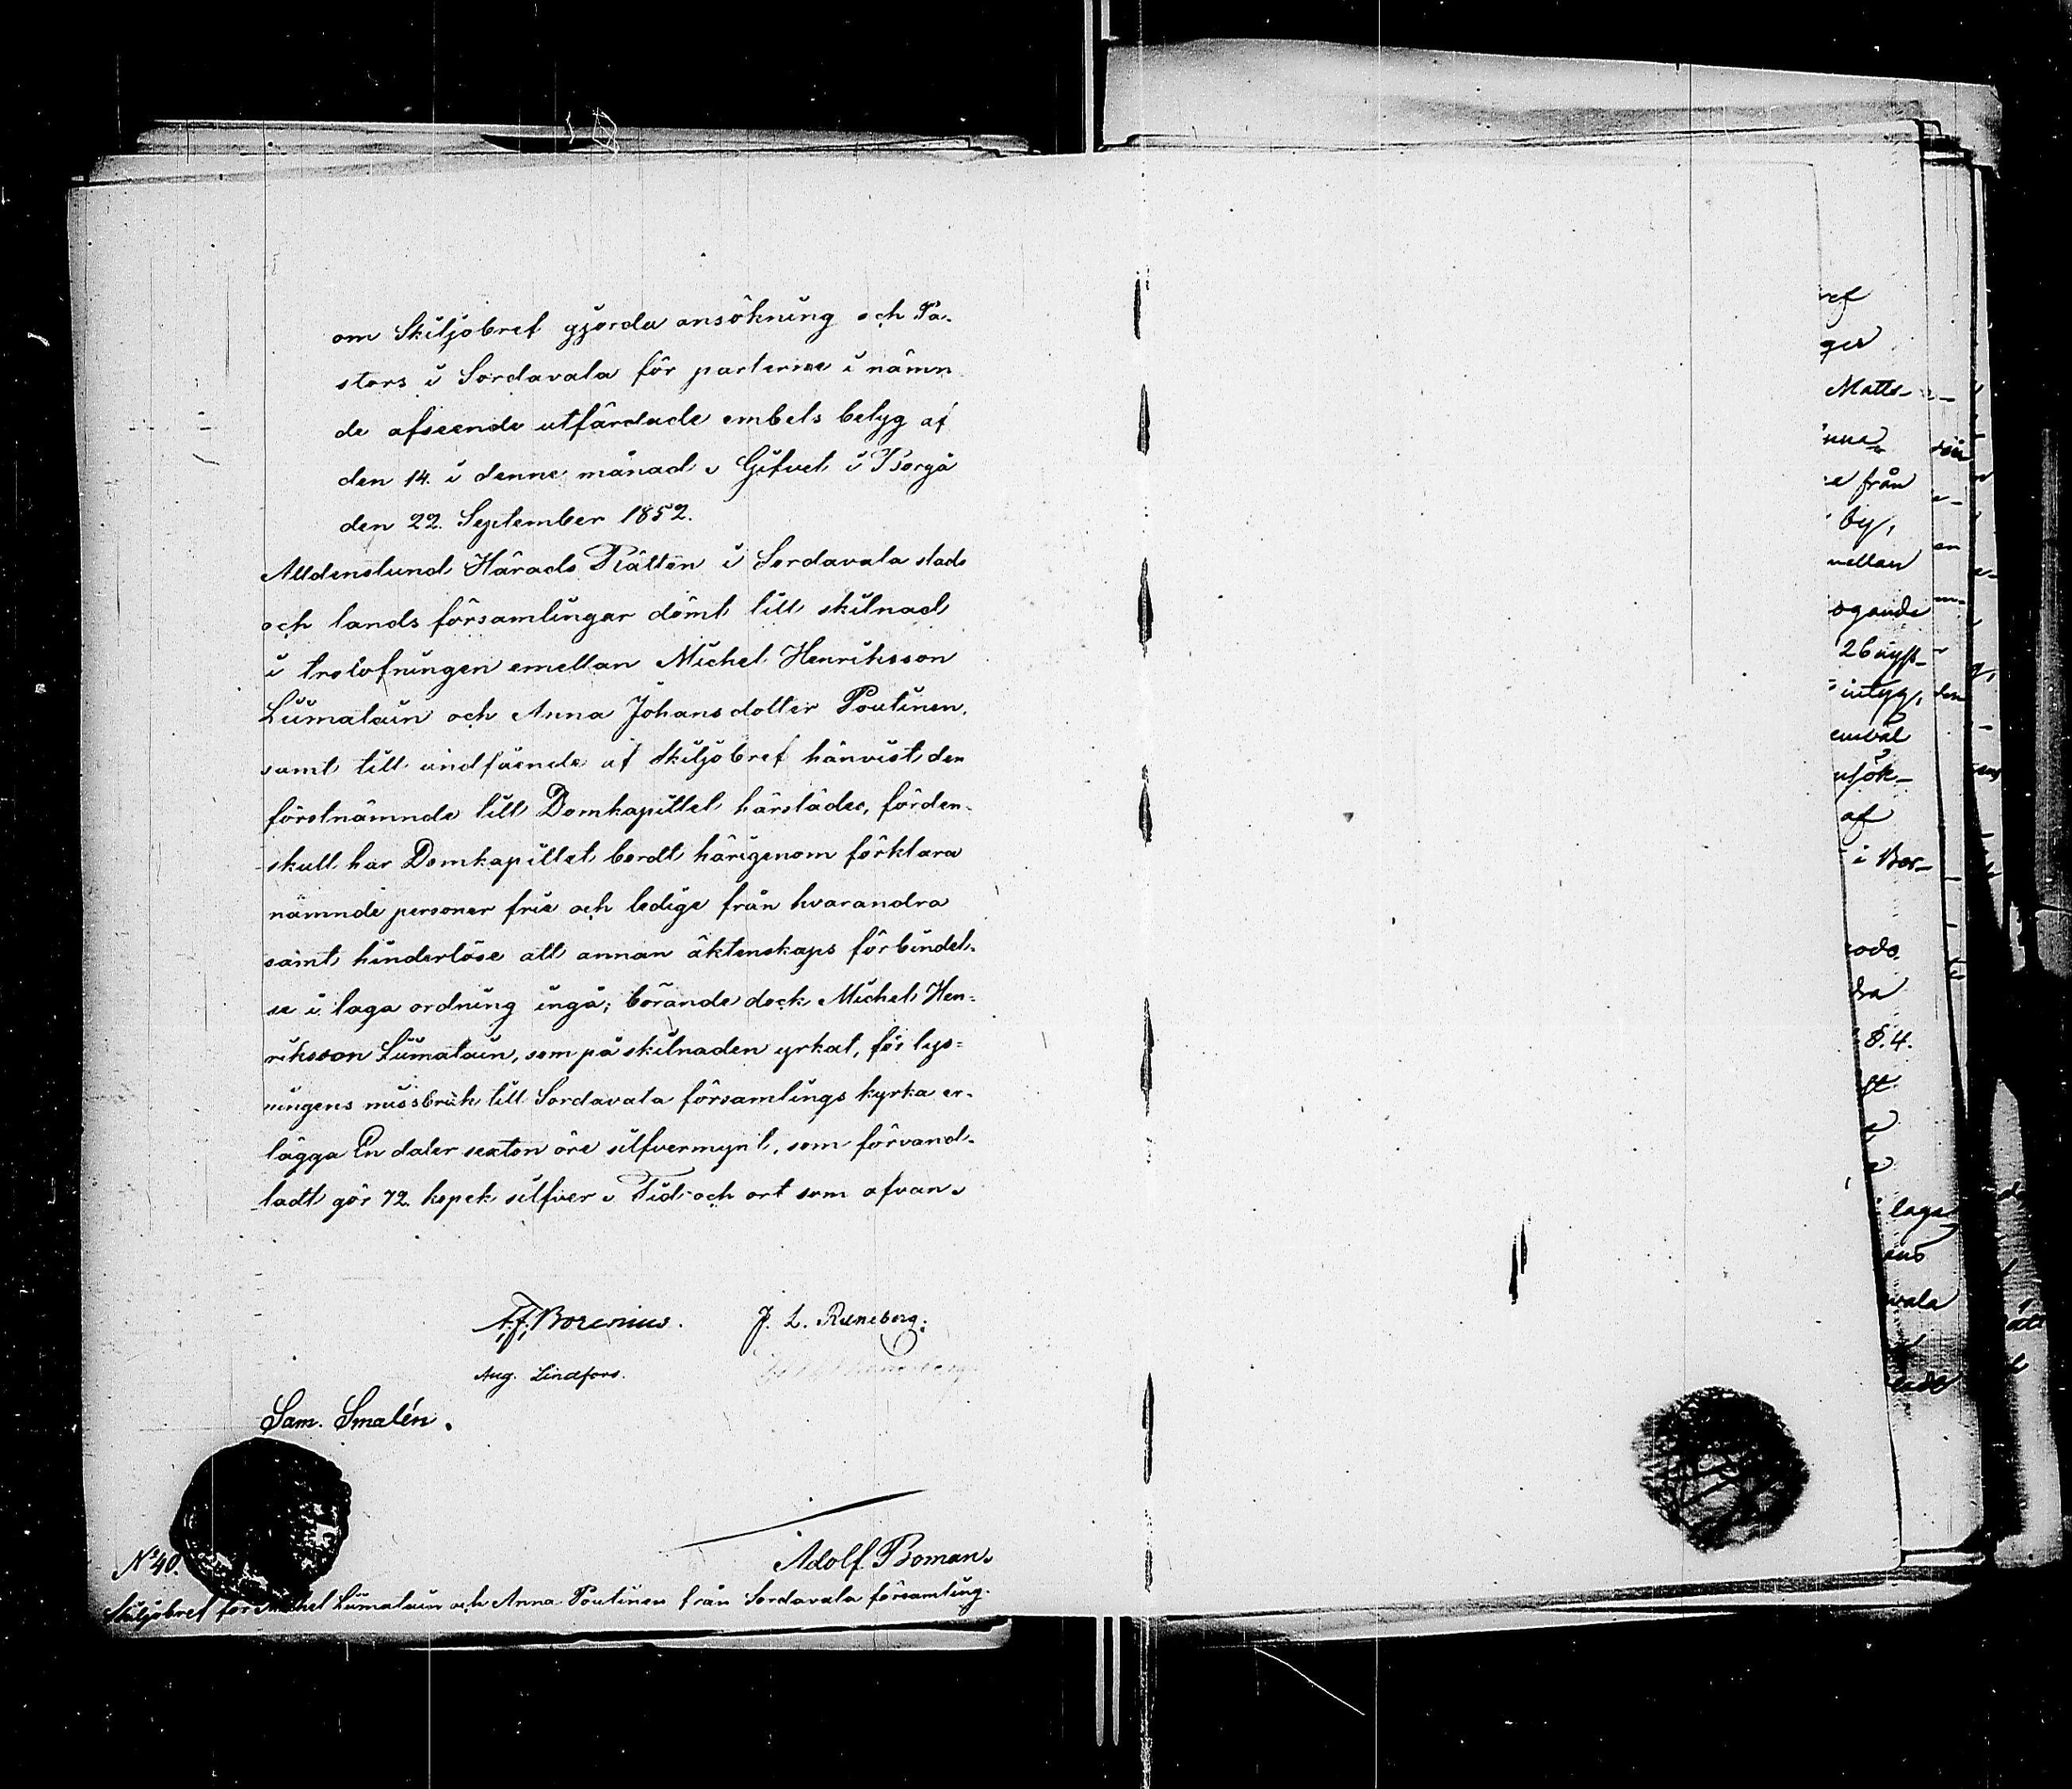 om Skiljobref gjorda ansökning och Pa-
stors i Sordavala för parterne i nämn
de afseende utfärdade embets betyg af
den 14. i denne månad. Gifvet i Borgå
den 22. September 1852.
Alldenstund Härads Rätten i Sordavala stads
och lands församlingar dömt till skilnad
i trolofningen emellan Michel Henriksson
Liimatain och Anna Johansdotter Poutinen,
samt till undfående af Skiljobref hänvist den
förstnämnde till Domkapitlet härstädes, förden-
skull har Domkapitlet bordt härigenom förklara
nämnde personer frie och ledige från hvarandra
samt hinderlöse att annan äktenskaps förbindel-
se i laga ordning ingå; börande dock Michel Hen-
riksson Liimatain, som på skilnaden yrkat, för lys-
ningens missbruk till Sordavala församlings kyrka er-
lägga En daler sexton öre silfvermynt, som förvand-
ladt gör 72. kopek silfver. Tid och ort som ofvan.
A.F. Borenius. J. L. Runeberg.
Aug. Lindfors.
Sam. Smalén.
Adolf Boman.
No 40.
Skiljobref för Michel Liimatain och Anna Poutinen från Sordavala församling.
ref
ger
Matts-
e från
by,
mellan
intyg,
af
i Bor-
8.4.
laga